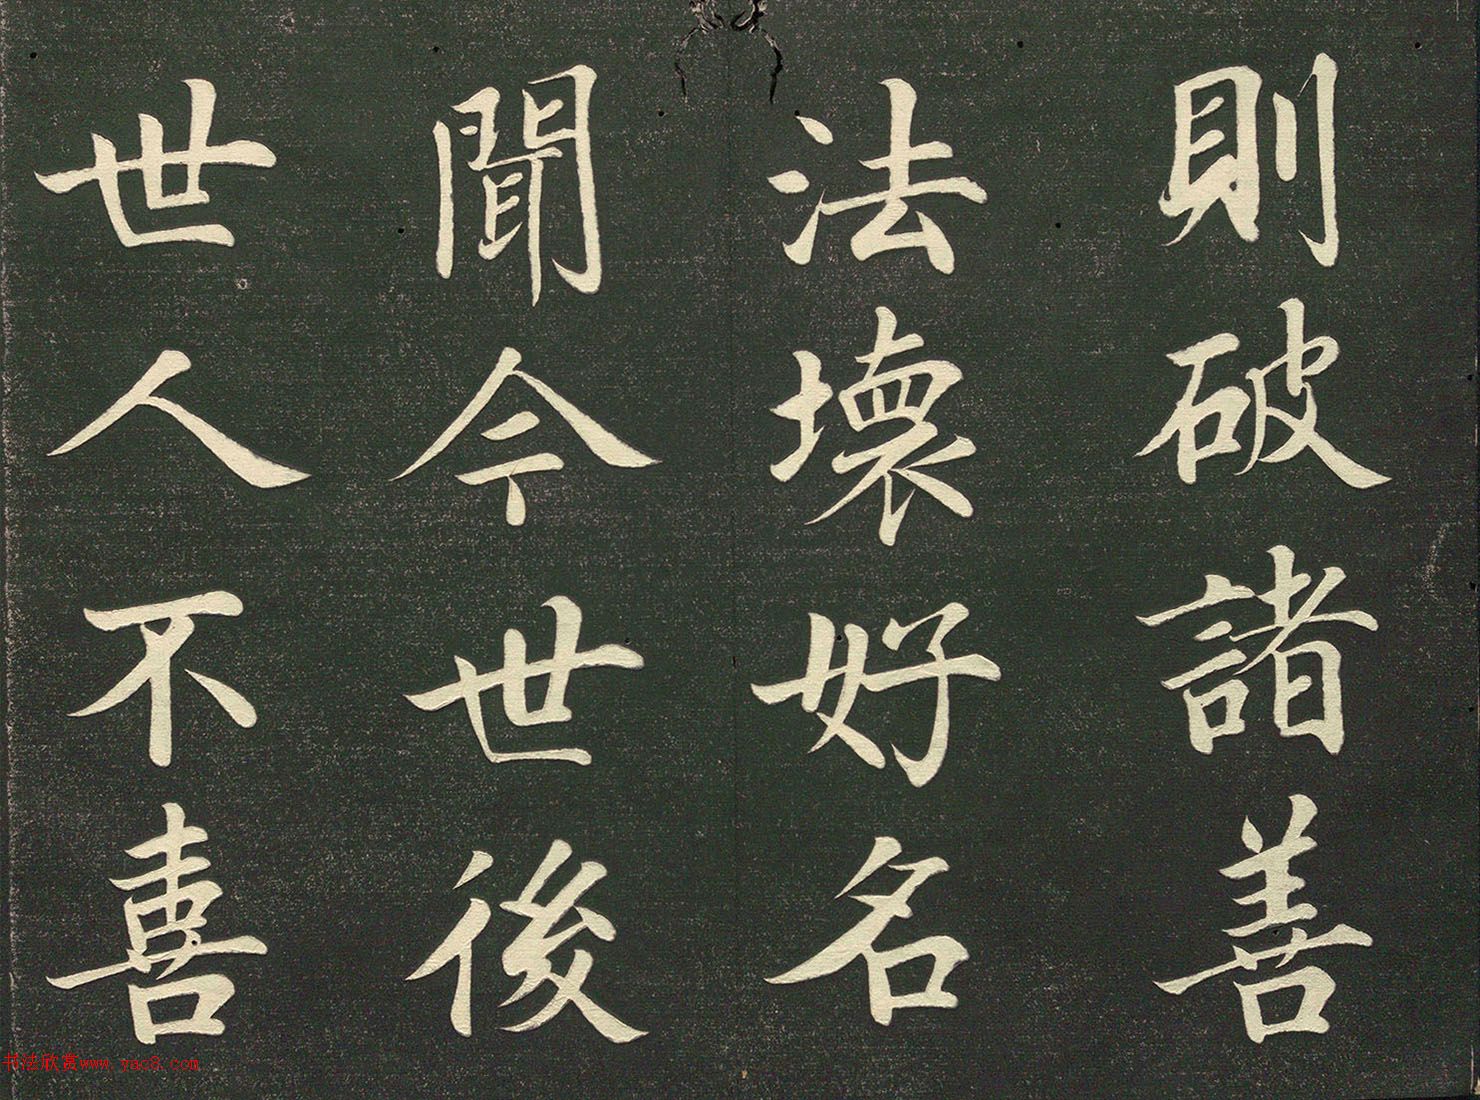 則破諸善
法壞好名
聞今世後
世人不喜
书法欣赏www.yac8.com